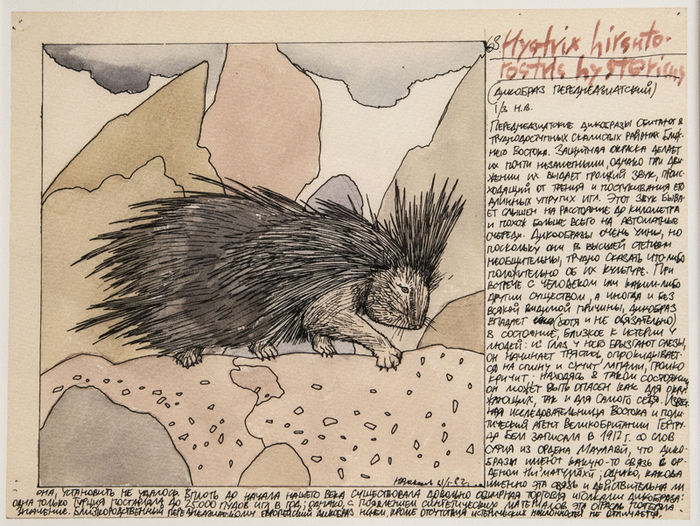 68. Hystrix hirsuto-
rostris hystericus
(ДИКОБРАЗ ПЕРЕДНЕАЗИАТСКИЙ)
1/3 Н.В.
ПЕРЕДНЕАЗИАТСКИЕ ДИКОБРАЗЫ ОБИТАЮТ В
ТРУДНОДОСТУПНЫХ СКАЛИСТЫХ РАЙОНАХ БЛИЖ-
НЕГО ВОСТОКА. ЗАЩИТНАЯ ОКРАСКА ДЕЛАЕТ
ИХ ПОЧТИ НЕЗАМЕТНЫМИ, ОДНАКО ПРИ ДВИ-
ЖЕНИИ ИХ ВЫДАЕТ ГРОМКИЙ ЗВУК, ПРОИС-
ХОДЯЩИЙ ОТ ТРЕНИЯ И ПОСТУКИВАНИЯ ЕГО
ДЛИННЫХ УПРУГИХ ИГЛ. ЭТОТ ЗВУК БЫВА-
ЕТ СЛЫШЕН НА РАССТОЯНИЕ ДО КИЛОМЕТРА
И ПОХОЖ БОЛЬШЕ ВСЕГО НА АВТОМАТНЫЕ
ОЧЕРЕДИ. ДИКОБРАЗЫ ОЧЕНЬ УМНЫ, НО
ПОСКОЛЬКУ ОНИ В ВЫСШЕЙ СТЕПЕНИ
НЕОБЩИТЕЛЬНЫ, ТРУДНО СКАЗАТЬ ЧТО-ЛИБО
ПОЛОЖИТЕЛЬНО ОБ ИХ КУЛЬТУРЕ. ПРИ
ВСТРЕЧЕ С ЧЕЛОВЕКОМ ИЛИ КАКИМ-ЛИБО
ДРУГИМ СУЩЕСТВОМ, А ИНОГДА И БЕЗ
ВСЯКОЙ ВИДИМОЙ ПРИЧИНЫ, ДИКОБРАЗ
ВПАДАЕТ (ХОТЯ И НЕ ОБЯЗАТЕЛЬНО)
В СОСТОЯНИЕ, БЛИЗКОЕ К ИСТЕРИИ У
ЛЮДЕЙ: ИЗ ГЛАЗ У НЕГО БРЫЗГАЮТ СЛЕЗЫ,
ОН НАЧИНАЕТ ТРЯСТИСЬ, ОПРОКИДЫВАЕТ-
СЯ НА СПИНУ И СУЧИТ ЛАПАМИ, ГРОМКО
КРИЧИТ. НАХОДЯСЬ В ТАКОМ СОСТОЯНИИ,
ОН МОЖЕТ БЫТЬ ОПАСЕН КАК ДЛЯ ОКРУ-
ЖАЮЩИХ, ТАК И ДЛЯ САМОГО СЕБЯ. ИЗВЕСТ-
НАЯ ИССЛЕДОВАТЕЛЬНИЦА ВОСТОКА И ПОЛИ-
ТИЧЕСКИЙ АГЕНТ ВЕЛИКОБРИТАНИИ ГЕРТРУ-
ДА БЕЛЛ ЗАПИСАЛА В 1912 Г. СО СЛОВ
СУФИЯ ИЗ ОРДЕНА МАУЛАВИ, ЧТО ДИКО-
БРАЗЫ ИМЕЮТ КАКУЮ-ТО СВЯЗЬ С ОР-
ДЕНОМ НИ'МАТУЛЛАХИ; ОДНАКО, КАКОВА
ИМЕННО ЭТА СВЯЗЬ И ДЕЙСТВИТЕЛЬНА ЛИ
ОНА, УСТАНОВИТЬ НЕ УДАЛОСЬ. ВПЛОТЬ ДО НАЧАЛА НАШЕГО ВЕКА СУЩЕСТВОВАЛА ДОВОЛЬНО ОБШИРНАЯ ТОРГОВЛЯ ИГОЛКАМИ ДИКОБРАЗА:
ОДНА ТОЛЬКО ТУРЦИЯ ПОСТАВЛЯЛА ДО 25000 ПУДОВ ИГЛ В ГОД; ОДНАКО, С ПОЯВЛЕНИЕМ СИНТЕТИЧЕСКИХ МАТЕРИАЛОВ ЭТА ОТРАСЛЬ ПОТЕРЯЛА
ЗНАЧЕНИЕ. БЛИЗКОРОДСТВЕННЫЙ ПЕРЕДНЕАЗИАТСКОМУ ЕВРОПЕЙСКИЙ ДИКОБРАЗ НИЧЕМ, КРОМЕ ОТСУТСТВИЯ ИСТЕРИЧЕСКИХ НАКЛОННОСТЕЙ НЕ ОТЛИЧАЕТСЯ.